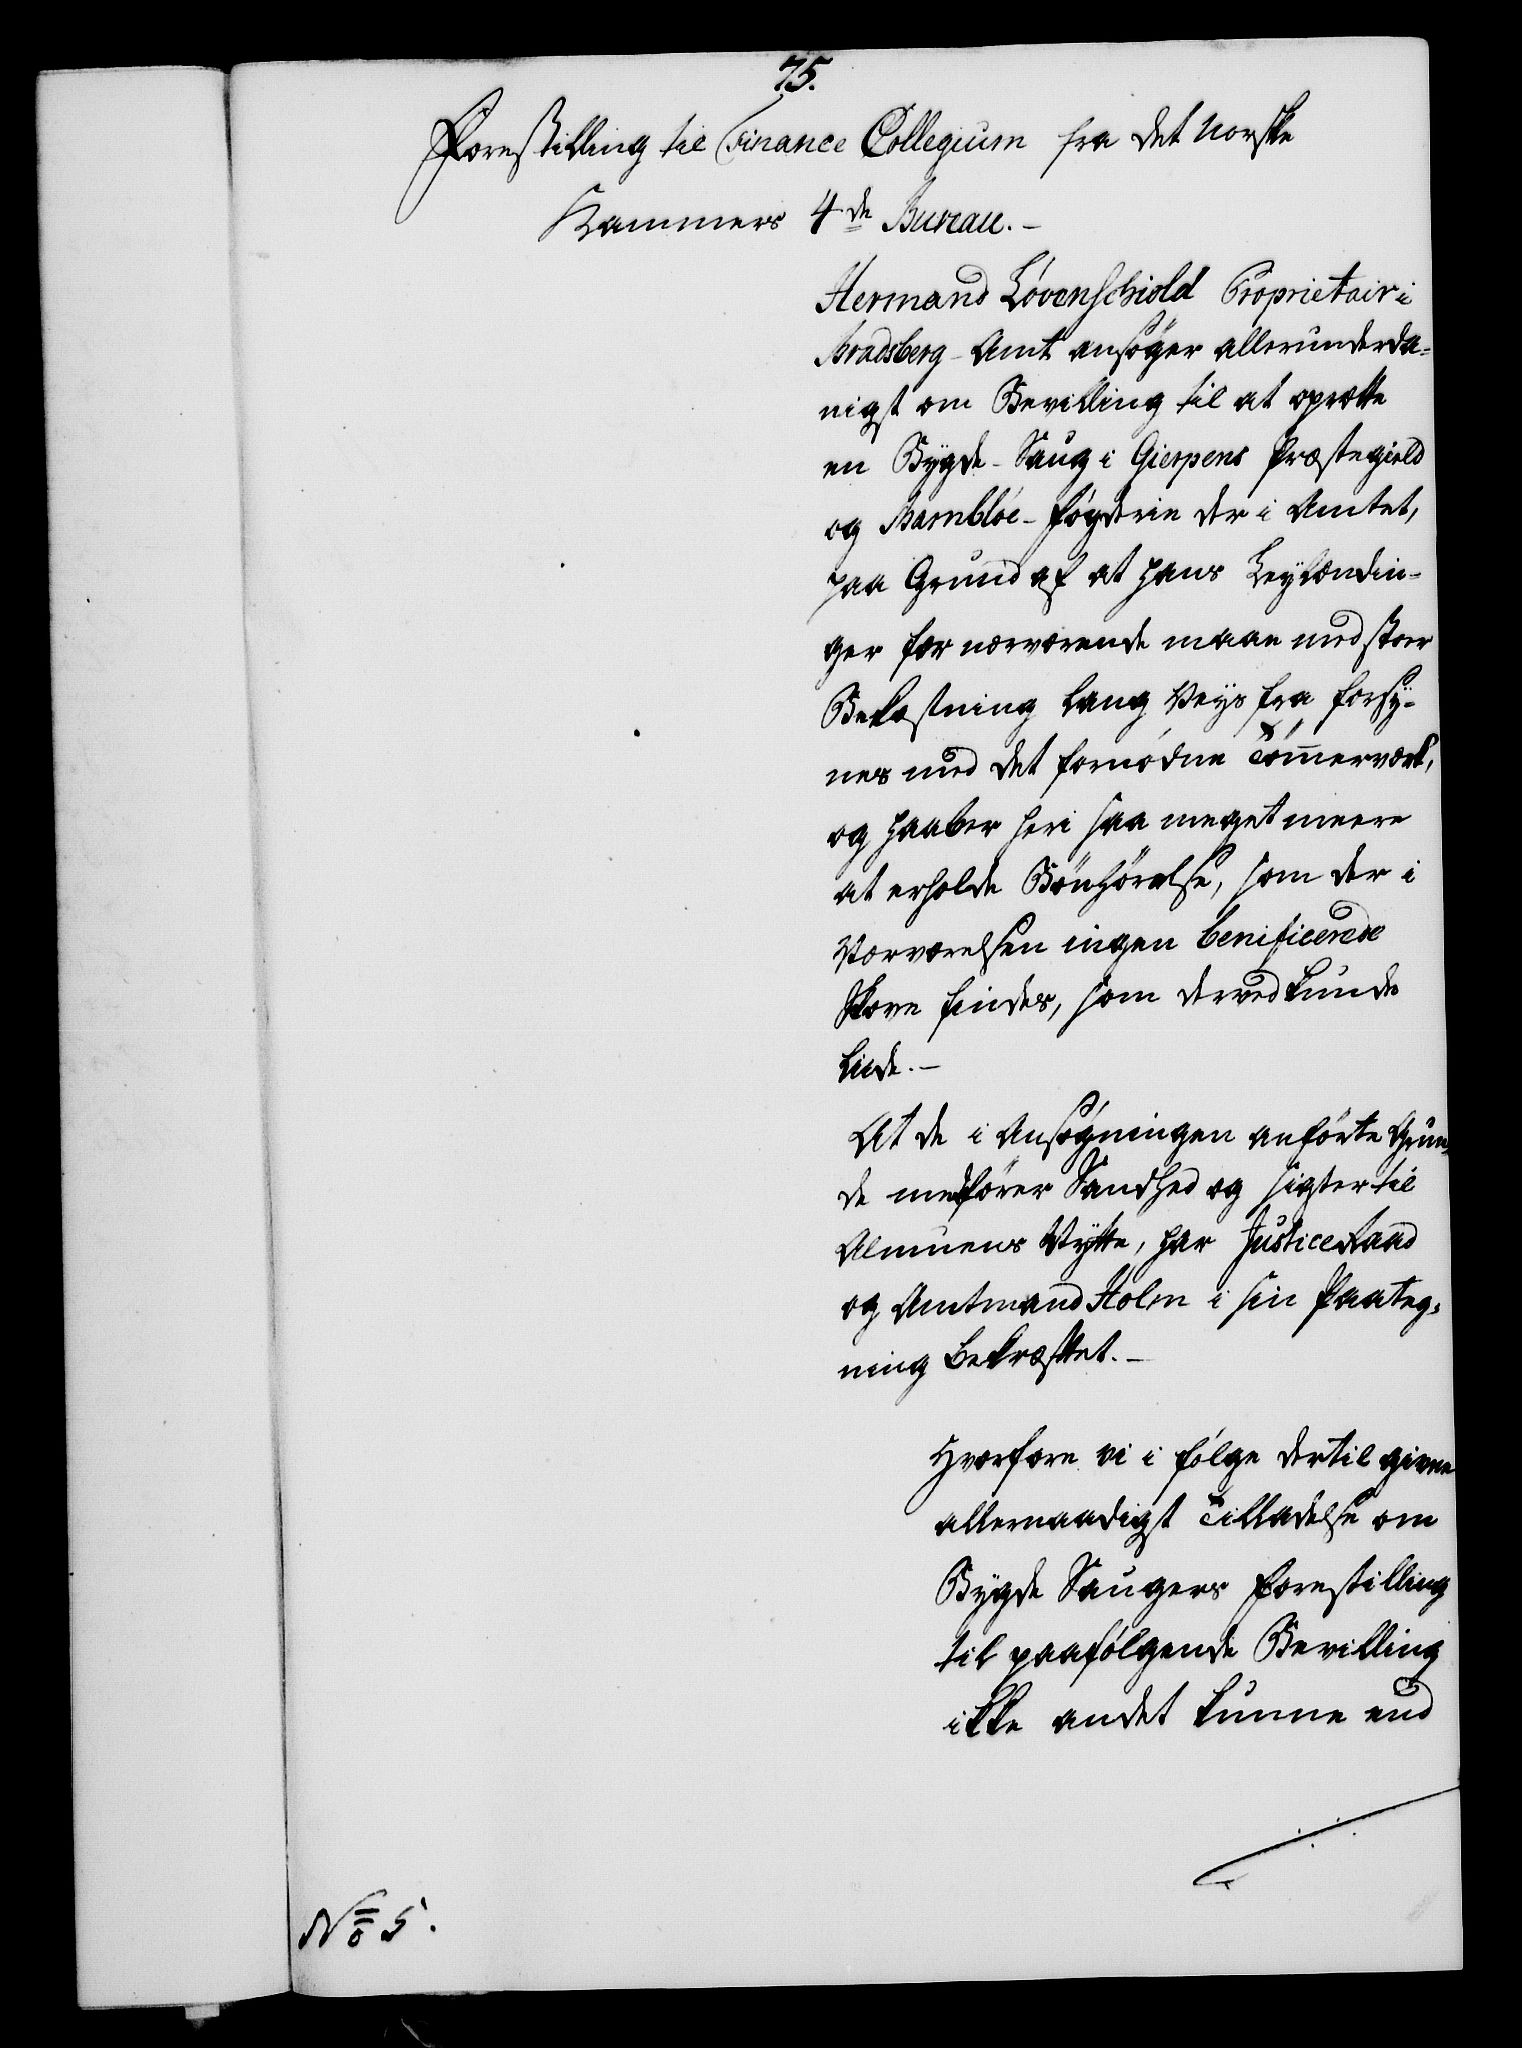 75.
Forestilling til Finance Collegium fra det Norske
Kammers 4de Bureau.-
Hermand Løvenschiold Proprietair i
Bradsberg-Amt ansøger allerunderda-
nigst om Bevilling til at oprette
en Bÿgde-Saug i Gierpens Præstegield
og Bambløe-Fogderie der i Amtet,
paa Grund af at hans Leÿlændin-
ger for nærværende maae med stoer
Bekostning lang Veÿs fra forsÿ-
nes med det fornødne Tømmerværk,
og haaber heri saa meget meere
at erholde Bönhörelse, som der i
Nærværelsen ingen benificerede
Skove findes, som derved kunde
liide.-
At de i Ansøgningen anførte Grun-
de medfører Sandhed og sigter til
Almuens Nÿtte, har Justice Raad
og Amtmand Holm i sin Paateg-
ning bekræftet.-
Hvorfore vi i følge dertil given
allernaadigst Tilladelse om
Bÿgde Saugers Forestilling
til paafølgende Bevilling
ikke andet kunne end
No 5.